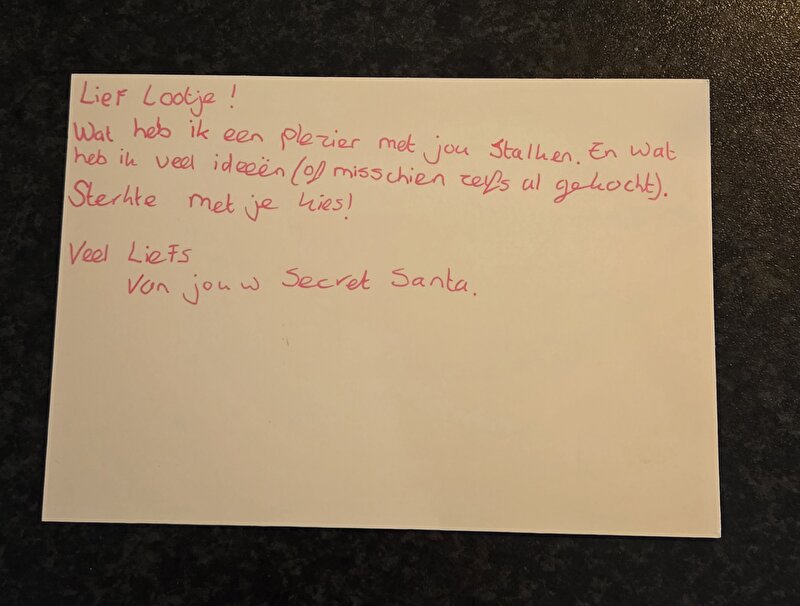 Lief Lootje!
Wat heb ik een plezier met jou Stalken. En wat
heb ik veel ideeën (of misschien zelfs al gekocht).
Sterkte met je kies!
Veel Liefs
van jouw Secret Santa.